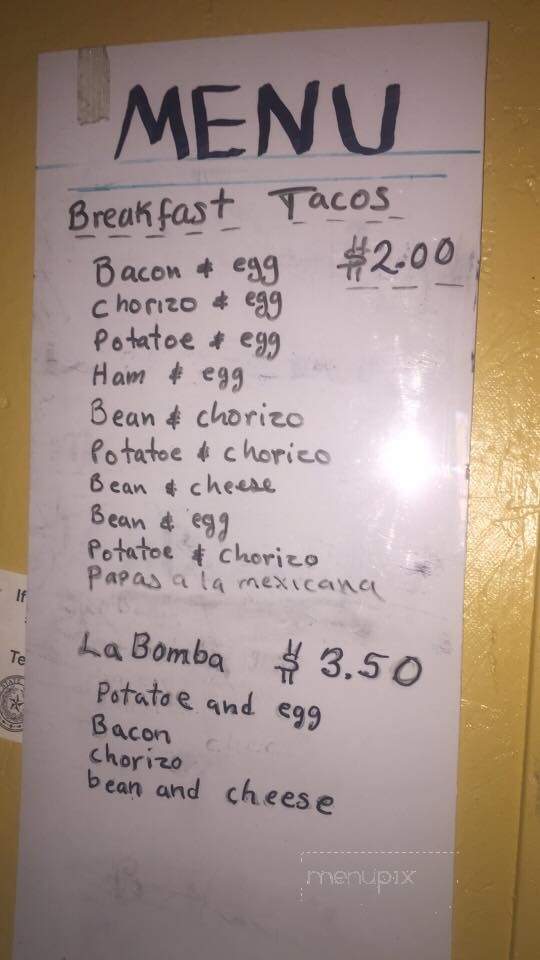 MENU
Breakfast Tacos
Bacon & egg $2.00
chorizo & egg
Potatoe & egg
Ham & egg
Bean & chorizo
Potatoe & chorizo
Bean & cheese
Bean & egg
Potatoe & chorizo
Papas a la mexicana
La Bomba $3.50
Potatoe and egg
Bacon
chorizo
bean and cheese
If
Te
menupix